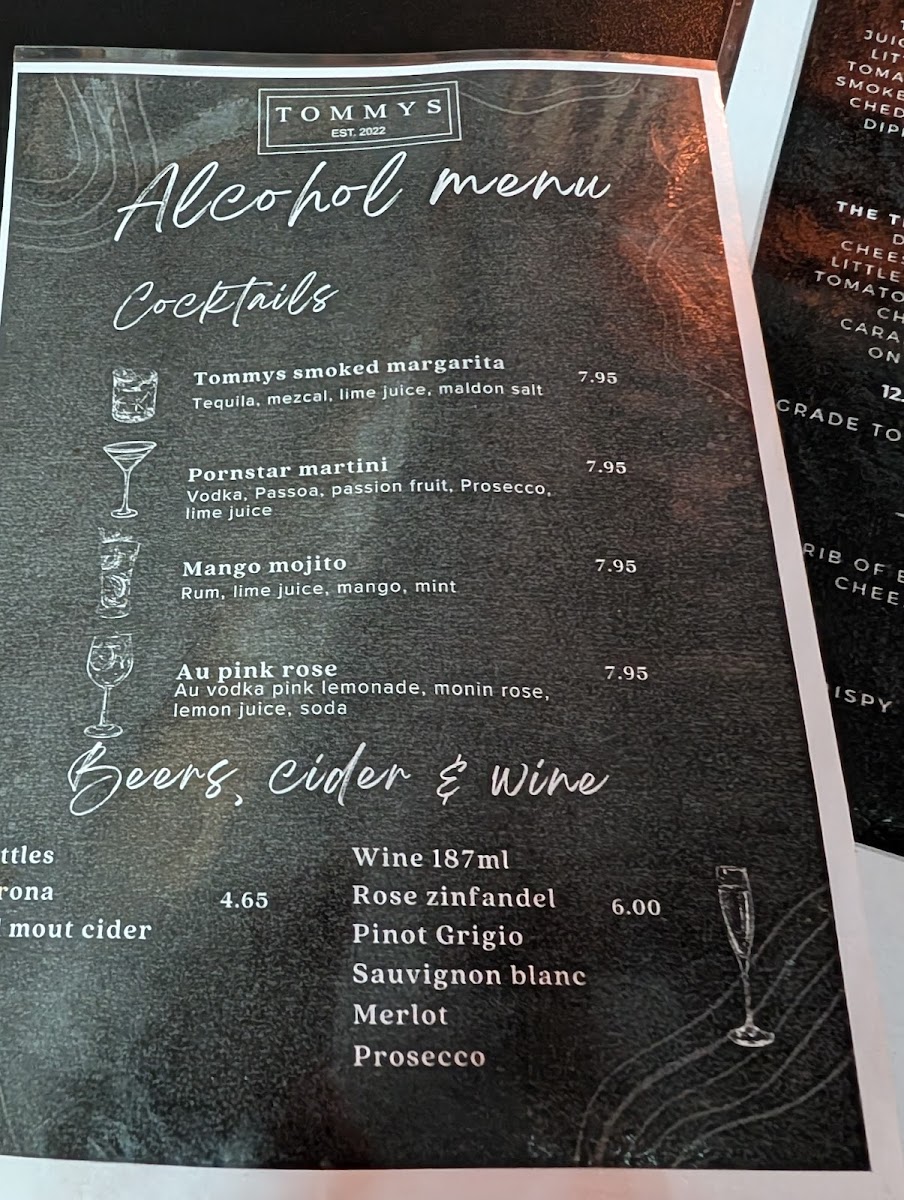 TOMMYS
EST. 2022
Alcohol menu
Cocktails
Tommys smoked margarita 7.95
Tequila, mezcal, lime juice, maldon salt
Pornstar martini 7.95
Vodka, Passoa, passion fruit, Prosecco,
lime juice
Mango mojito 7.95
Rum, lime juice, mango, mint
Au pink rose 7.95
Au vodka pink lemonade, monin rose,
lemon juice, soda
Beers, cider & wine
ttles
rona 4.65
mout cider
Wine 187ml
Rose zinfandel 6.00
Pinot Grigio
Sauvignon blanc
Merlot
Prosecco
JUIC
LIT
TOMA
SMOKE
CHED
DIP
THE T
D
CHEES
LITTLE
TOMATO
CH
CARA
ON
12.
GRADE TO
RIB OF B
CHEE
ISPY